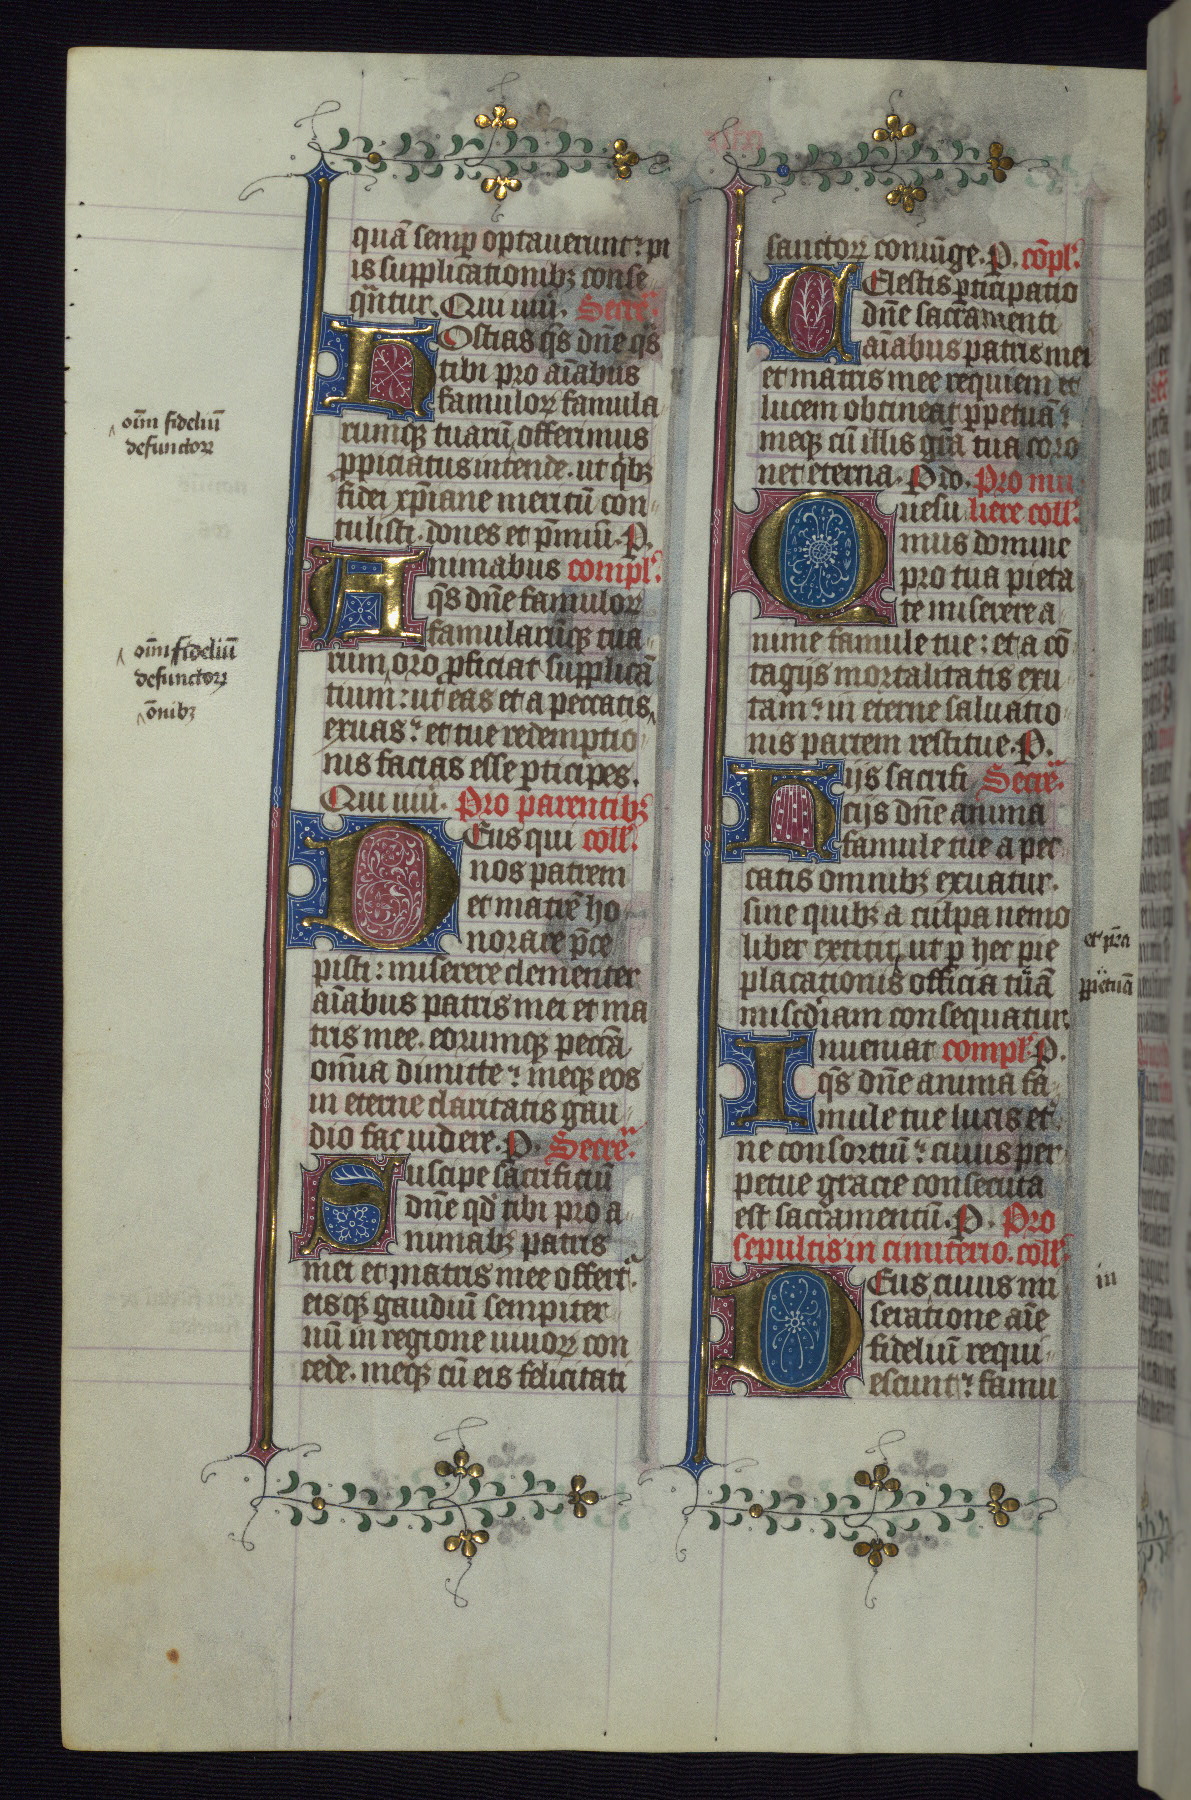 quā semp optauerunt: pi
is supplicationibꝫ conse
qntur. Qui uiu. Secre.
HOstias qs dne qs
tibi pro aiabus
famuloꝝ famula
rumqꝫ tuarū offerimus
ppiciatus intende. ut qbꝫ
fidei xpiane meritū con
tulisti. dones et pmiū. P.
Animabus compl.
qs dne famuloꝝ
famularūqꝫ tua
rum oro pficiat supplicā
tium: ut eas et a peccatis
exuas: et tue redemptio
nis facias esse pticipes.
Qui uiu. Pro parentibꝫ
DEus qui coll.
nos patrem
et matrē ho
norare pce
pisti: miserere clementer
aiabus patris mei et ma
tris mee. eorumqꝫ peccā
omia dimitte: meqꝫ eos
in eterne claritatis gau
dio fac uidere. P. Secre.
Suscipe sacrificiū
dne qd tibi pro a
nimabꝫ patris
mei et matris mee offert.
eisqꝫ gaudiū sempiter
nū in regione uiuoꝝ con
cede. meqꝫ cū eis felicitati
oim fideliū
defunctoꝝ
oim fideliū
defunctoꝝ
onibꝫ
sanctoꝝ coniūge. P. cōpl.
CElestis pticipatio
dne sacramenti
aiabus patris mei
et matris mee requiem et
lucem obtineat ppetuā:
meqꝫ cū illis gra tua coro
net eterna. P do. Pro mu
Quesu liere coll.
mus domine
pro tua pieta
te miserere a
nime famule tue: et a cō
tagijs mortalitatis exu
tam: in eterne saluatio
nis partem restitue. P.
Hijs sacrifi Secre.
cijs dne anima
famule tue a pec
catis omnibꝫ exuatur.
sine quibꝫ a culpa nemo
liber extitit ut p hec pie
placationis officia tuā
miscdiam consequatur.
Inueniat compl. P.
qs dne anima fa
mule tue lucis et
ne consortiū: cuius per
petue gracie consecuta
est sacramentū. P. Pro
sepultis in cimiterio. coll.
DEus cuius mi
seratione aīe
fideliū requi
escunt: famu
ppetuā
in